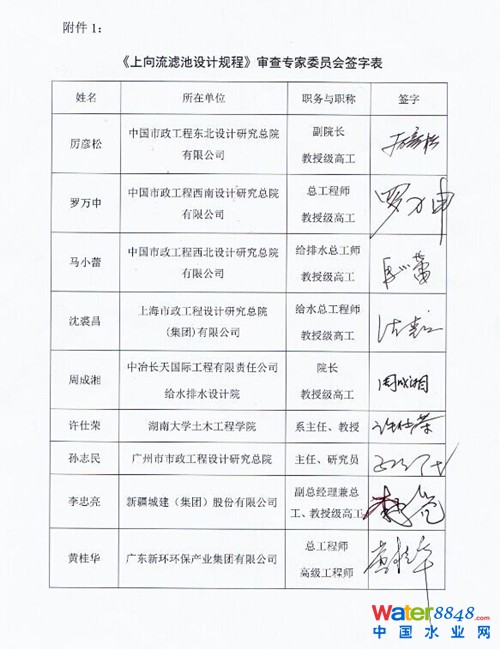 附件 1：
《上向流滤池设计规程》审查专家委员会签字表
姓名 所在单位 职务与职称 签字
厉彦松 中国市政工程东北设计研究总院有限公司 副院长 教授级高工 厉彦松
罗万申 中国市政工程西南设计研究总院有限公司 总工程师 教授级高工 罗万申
马小蕾 中国市政工程西北设计研究总院有限公司 给排水总工师 教授级高工 马小蕾
沈裘昌 上海市政工程设计研究总院(集团)有限公司 给水总工程师 教授级高工
周成湘 中冶长天国际工程有限责任公司 给水排水设计院 院长 教授级高工 周成湘
许仕荣 湖南大学土木工程学院 系主任、教授 许仕荣
孙志民 广州市市政工程设计研究总院 主任、研究员
李忠亮 新疆城建（集团）股份有限公司 副总经理兼总工、教授级高工
黄桂华 广东新环环保产业集团有限公司 总工程师 高级工程师 黄桂华
Water8848.com
中国水业网